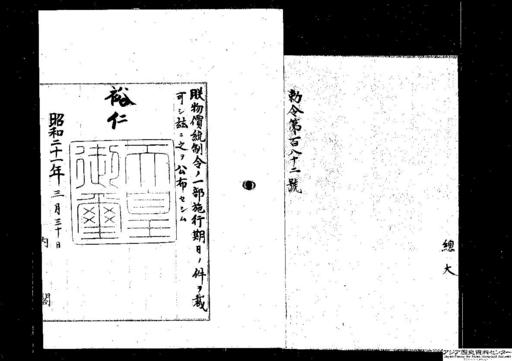 勅令第百八十二號
總大
朕物價統制令ノ一部施行期日ノ件ヲ裁
可シ茲ニ之ヲ公布セシム
裕仁
天皇御璽
昭和二十一年三月三十日
内閣
アジア歴史資料センター